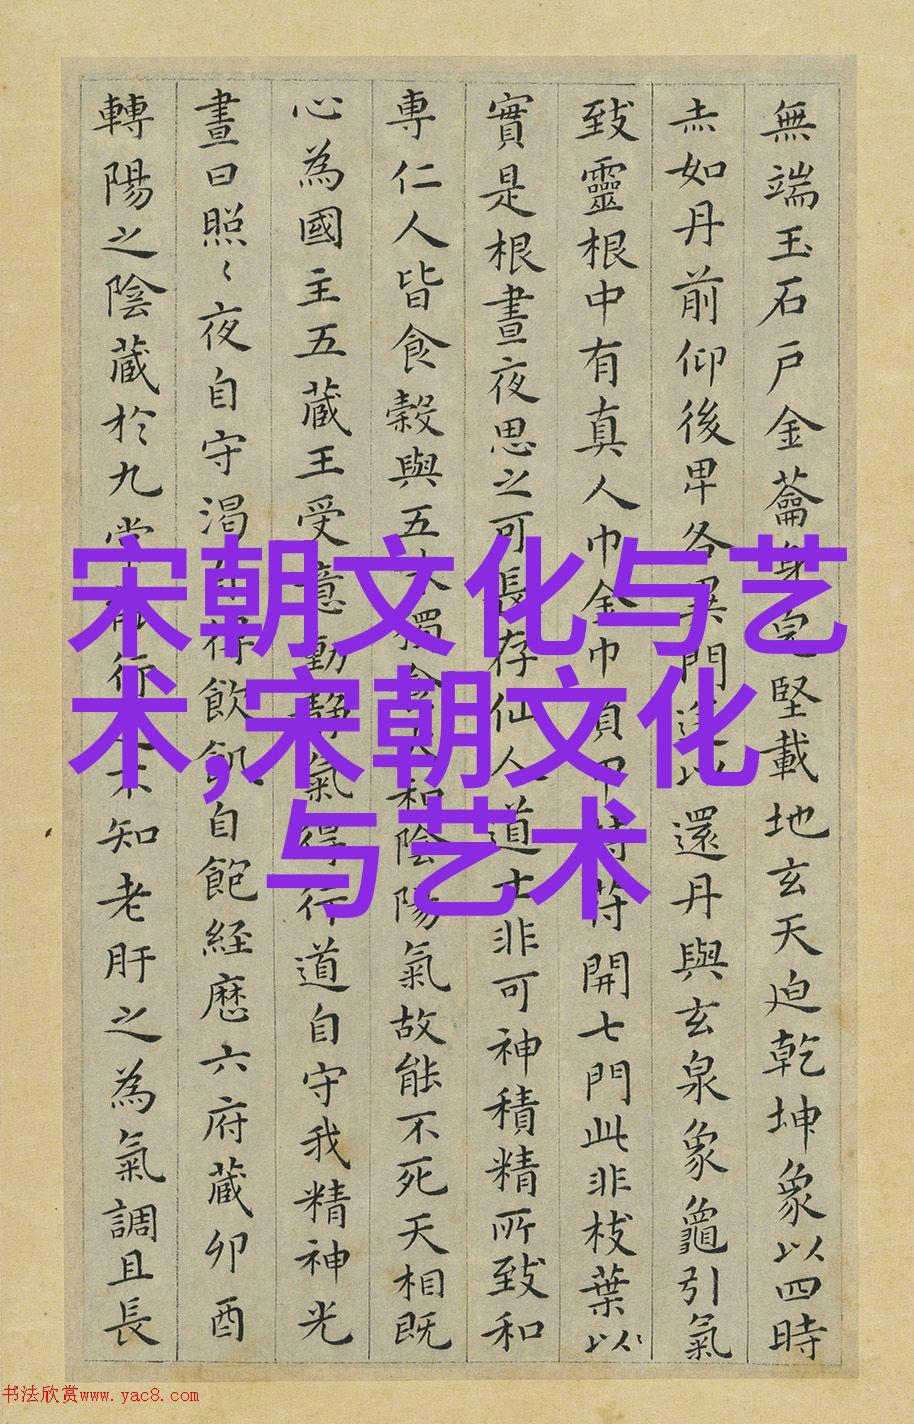 無端玉石戶金蘥身完堅載地玄天迫乾坤象以四時
赤如丹前仰後卑各異門送以還丹與玄泉象龜引氣
致靈根中有真人巾金巾負甲持符開七門此非枝葉以
實是根晝夜思之可長存仙人道士非可神積精所致和
專仁人皆食穀與五獨和陰陽氣故能不死天相既
心為國主五藏王受意動靜氣得行道自守我精神光
晝日照〻夜自守渴自得飲飢自飽経歷六府藏卯酉
轉陽之陰藏於九常能行不知老肝之為氣調且長
宋朝文化与艺
术,宋朝文化
与艺术
书法欣赏www.yac8.com